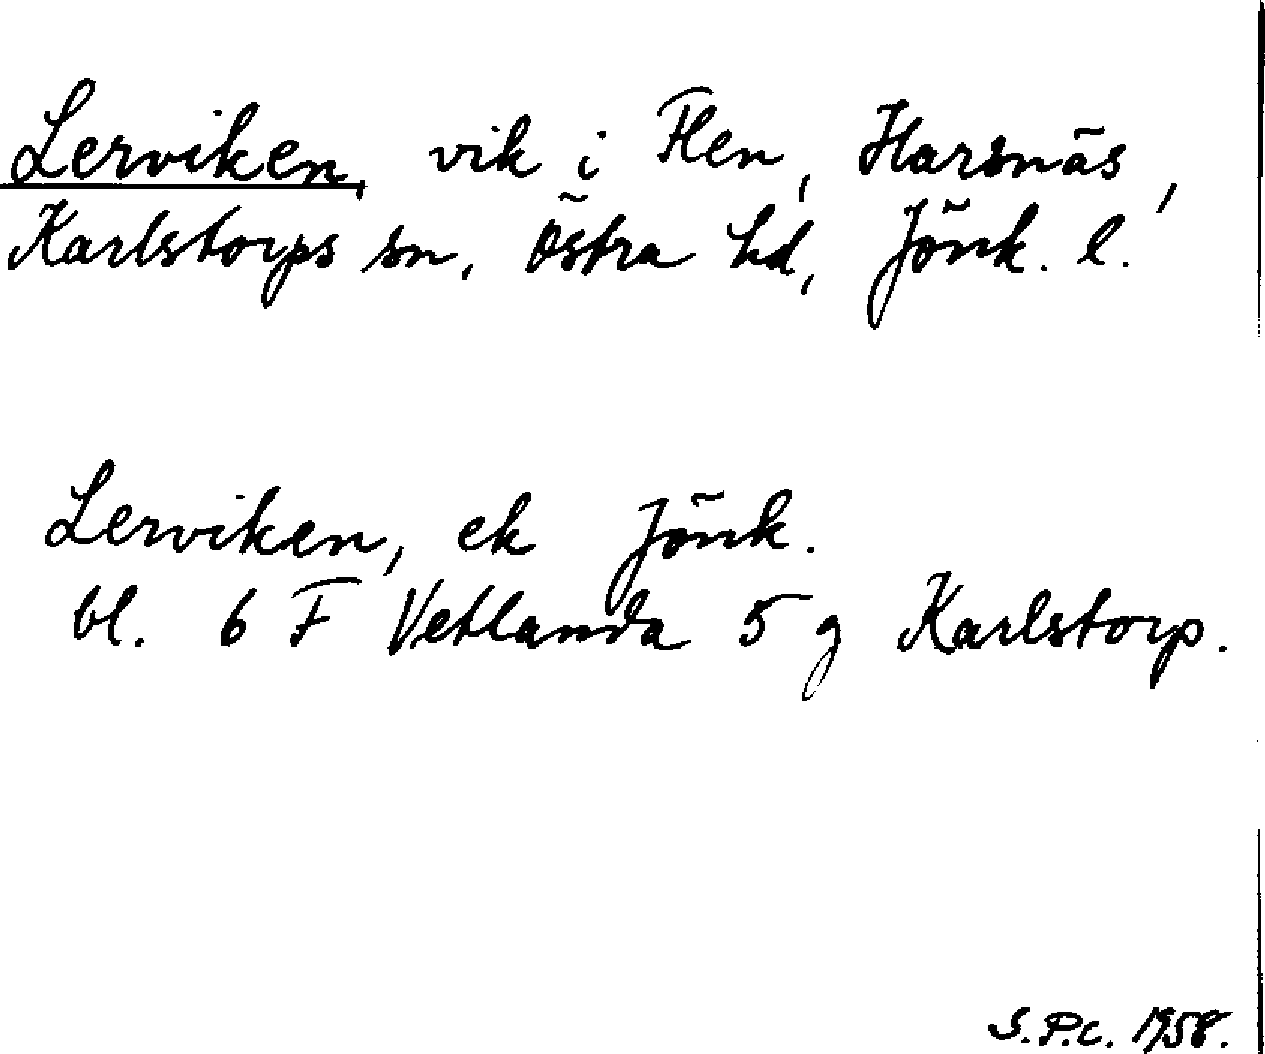 Lerviken, vik i Flen, Harsnäs,
Karlstorps sn, Östra hd, Jönk. l.
Lerviken, ek Jönk.
bl. 6 F Vetlanda 5 g Karlstorp.
S.P.C. 1958.